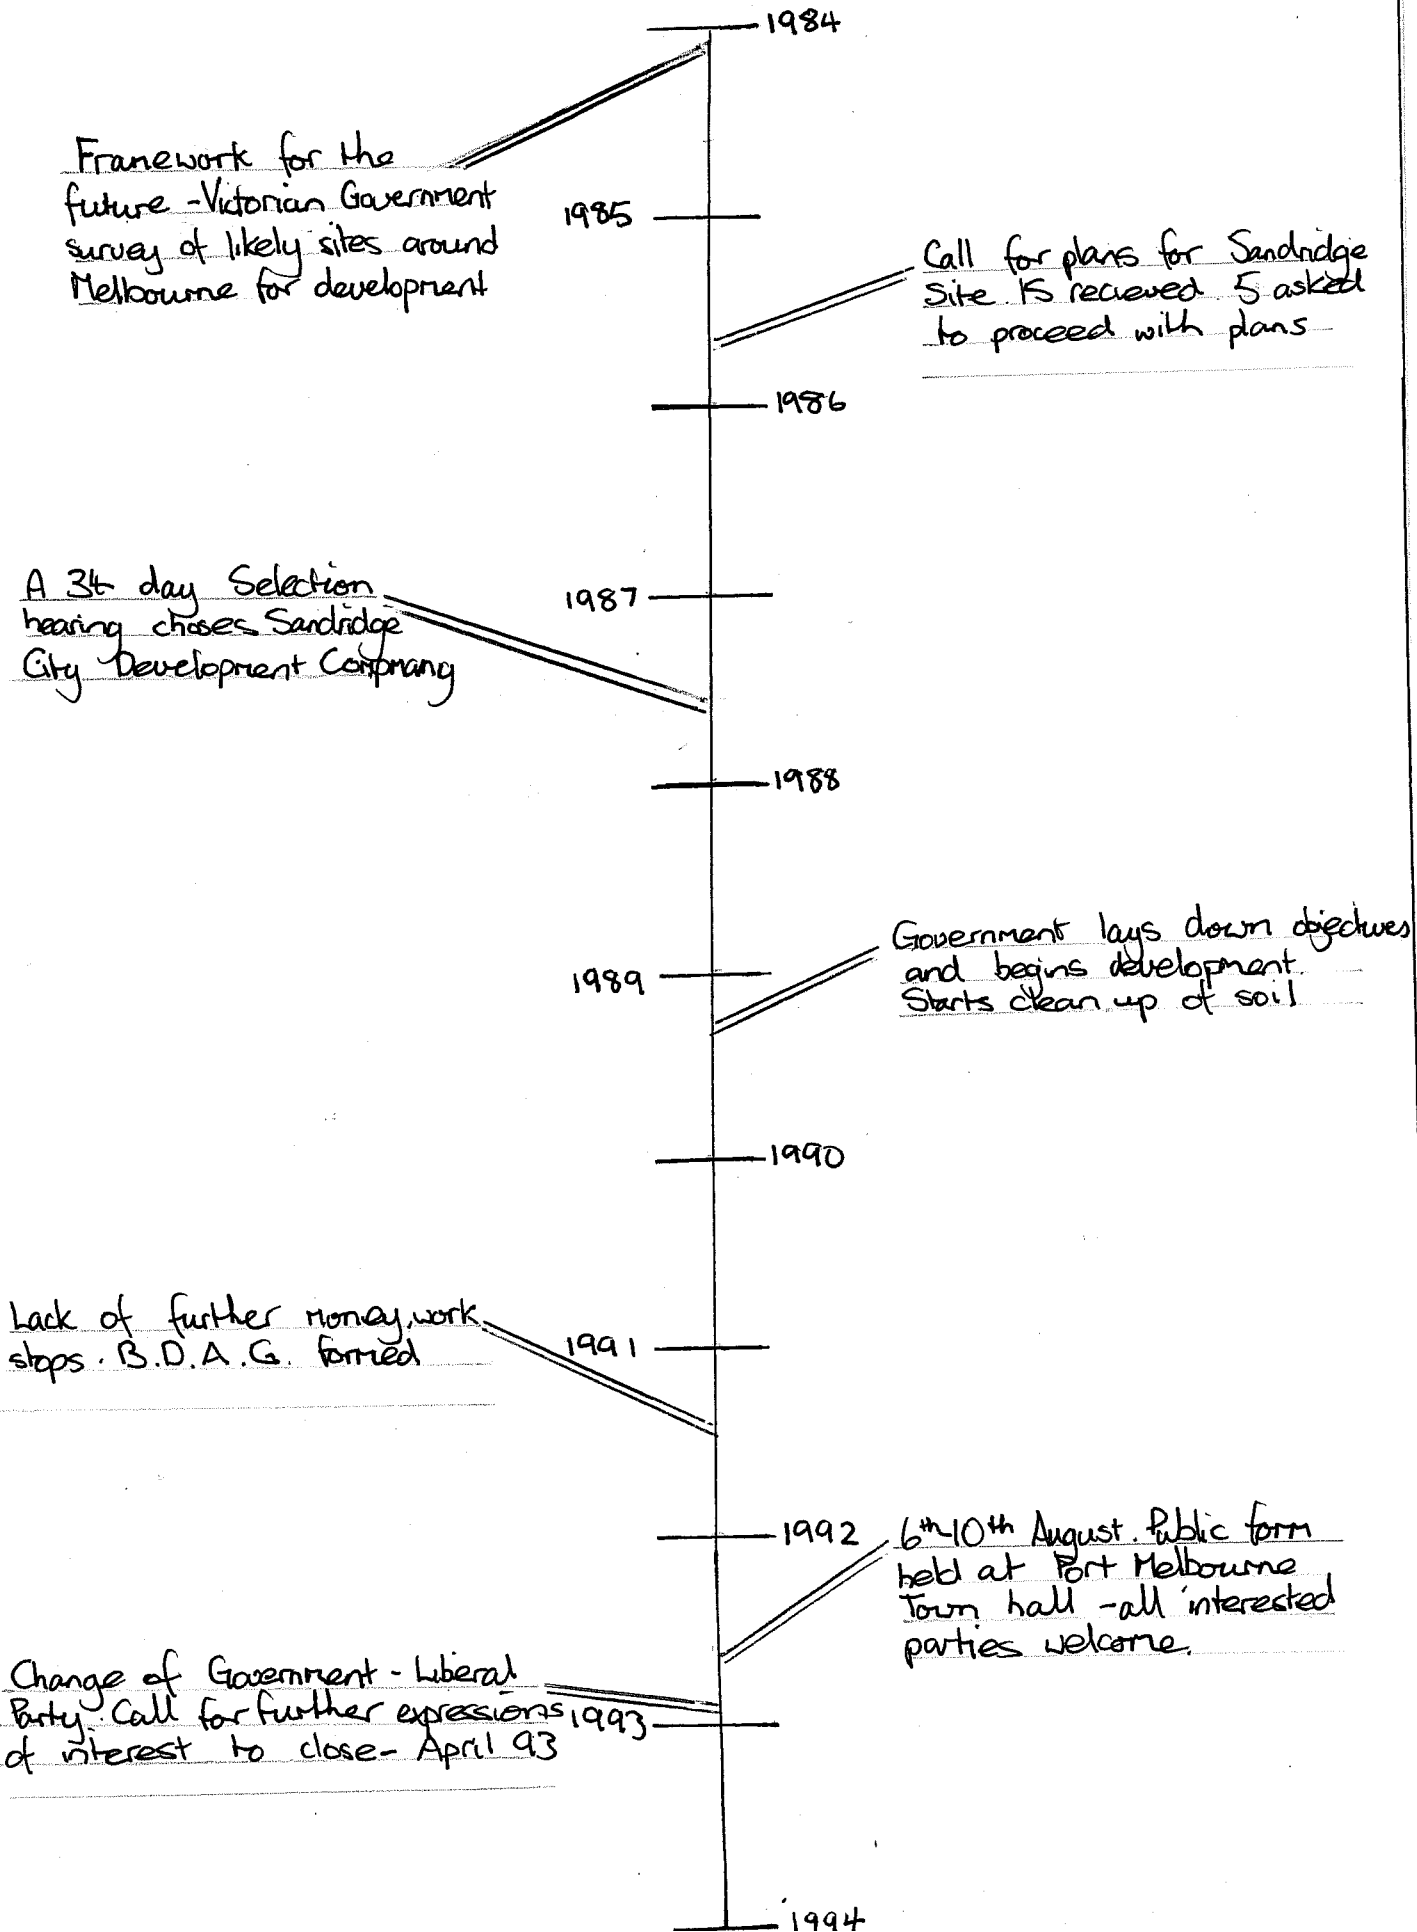 1984
Franework for the
future - Victorian Government
survey of likely sites around
Melbourne for development
1985
Call for plans for Sandridge
Site. 15 recieved 5 asked
to proceed with plans
1986
A 34 day Selection
hearing choses Sandridge
City Development
1987
1988
Government lays down objectives
and begins development.
Starts clean up of soil
1989
1990
Lack of further money, work
stops. B.D.A.G. formed
1991
1992
6th-10th August. Public form
held at Port Melbourne
Town hall - all interested
parties welcome.
Change of Government - Liberal
Party. Call for further expressions
of interest to close - April 93
1993
1994